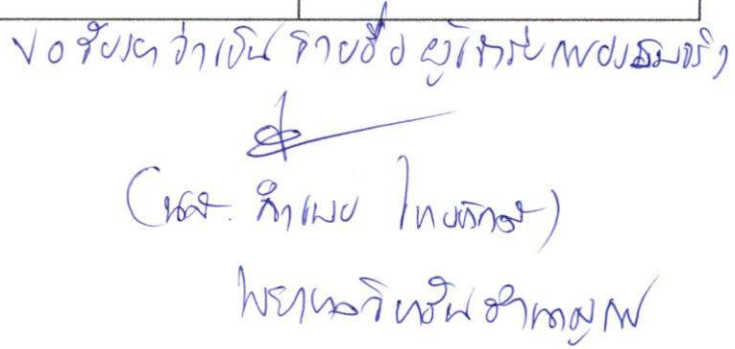 ขอรับรองว่าเป็นรายชื่อผู้เข้ารับการอบรมจริง
(นส. ไทย)
พยาบาลวิชาชีพชำนาญการ